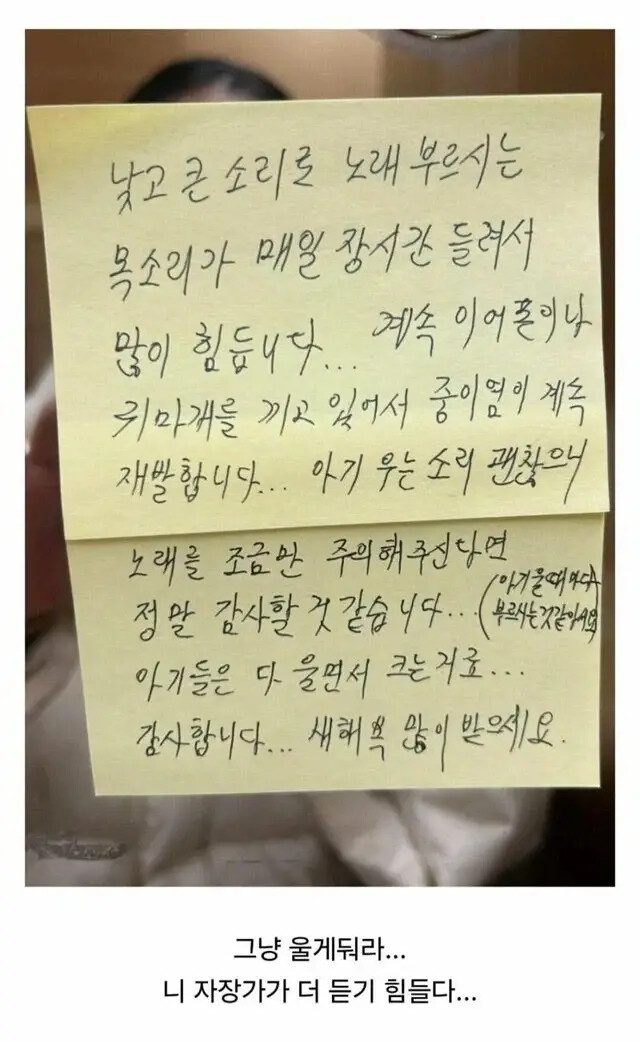 낮고 큰 소리로 노래 부르시는
목소리가 매일 장시간 들려서
많이 힘듭니다... 계속 이어폰이나
귀마개를 끼고 있어서 중이염이 계속
재발합니다... 아기 우는 소리 괜찮으니
노래를 조금만 주의해주신다면
정말 감사할 것 같습니다... (아기 울때마다
부르시는것같아서요)
아기들은 다 울면서 크는거죠...
감사합니다... 새해 복 많이 받으세요.
그냥 울게둬라...
니 자장가가 더 듣기 힘들다...